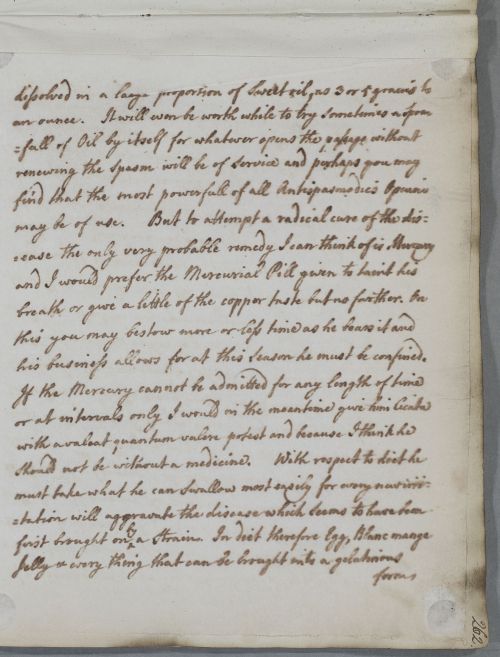 dissolved in a large proportion of Sweet oil, as 3 or 5 grains to
an ounce. It will even be worth while to try sometimes a spoon
=full of Oil by itself for whatever opens the passage without
renewing the Spasm will be of Service and perhaps you may
find that the most powerfull of all Antispasmodics Opium
may be of use. But to attempt a radical cure of the dis-
=ease the only very probable remedy I can think of is Mercury
and I would prefer the Mercurial Pill given to taint his
breath or give a little of the copper taste but no further. On
this you may bestow more or less time as he bears it and
his business allows for at this Season he must be confined.
If the Mercury cannot be admitted for any length of time
or at intervals only I would in the meantime give him Cicuta
with a valeat quantum valere potest and because I think he
should not be without a medicine. With respect to diet he
must take what he can swallow most easily for every new irri-
=tation will aggravate the disease which seems to have been
first brought on by a Strain. In diet therefore Egg, Blancmange
Jelly & every thing that can be brought into a gelatinous
form
262.